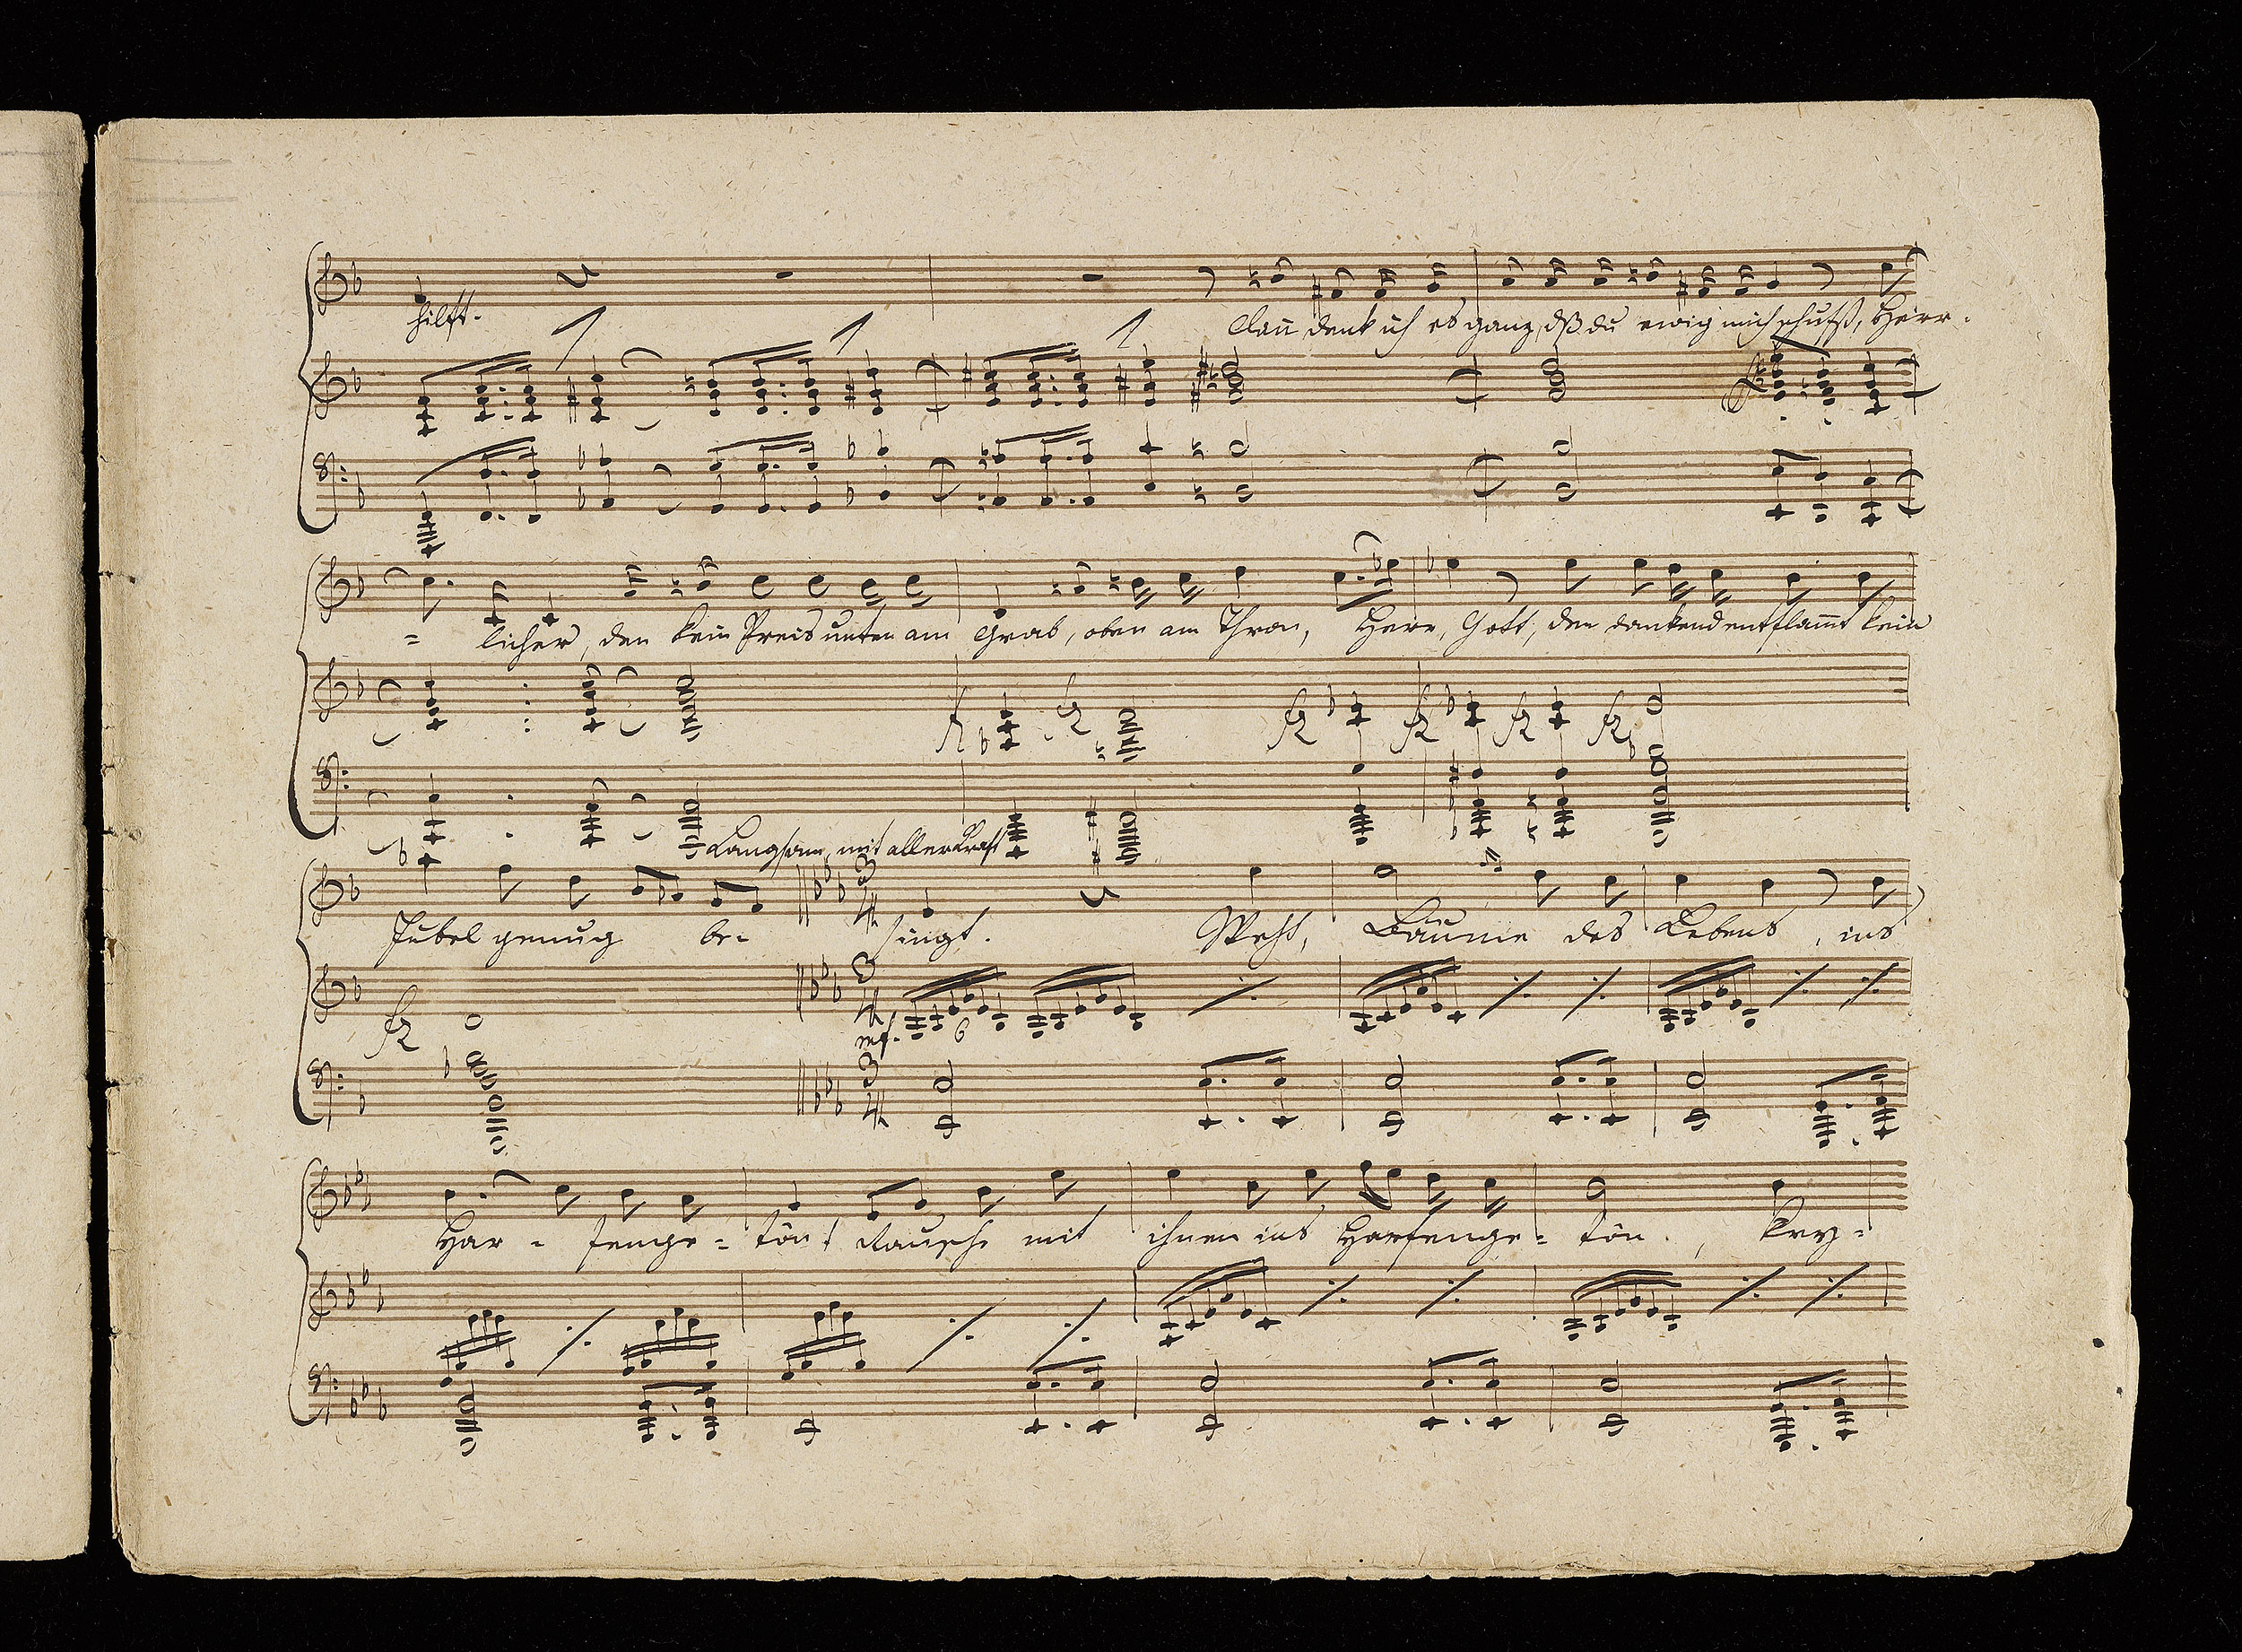 hilft. Dañ denk ich es ganz, dß du ewig mich schufst, Herr-
=licher, den kein Preis unten am Grab, oben am Thron, Herr, Gott, den dankend entflam̃t kein
Langsam, mit aller Kraft
Jubel genug be- singt. Weht, Bäume des Lebens, ins
mf. 6
Har- fenge= tön! Rausche mit ihnen ins Harfenge= tön., kry=